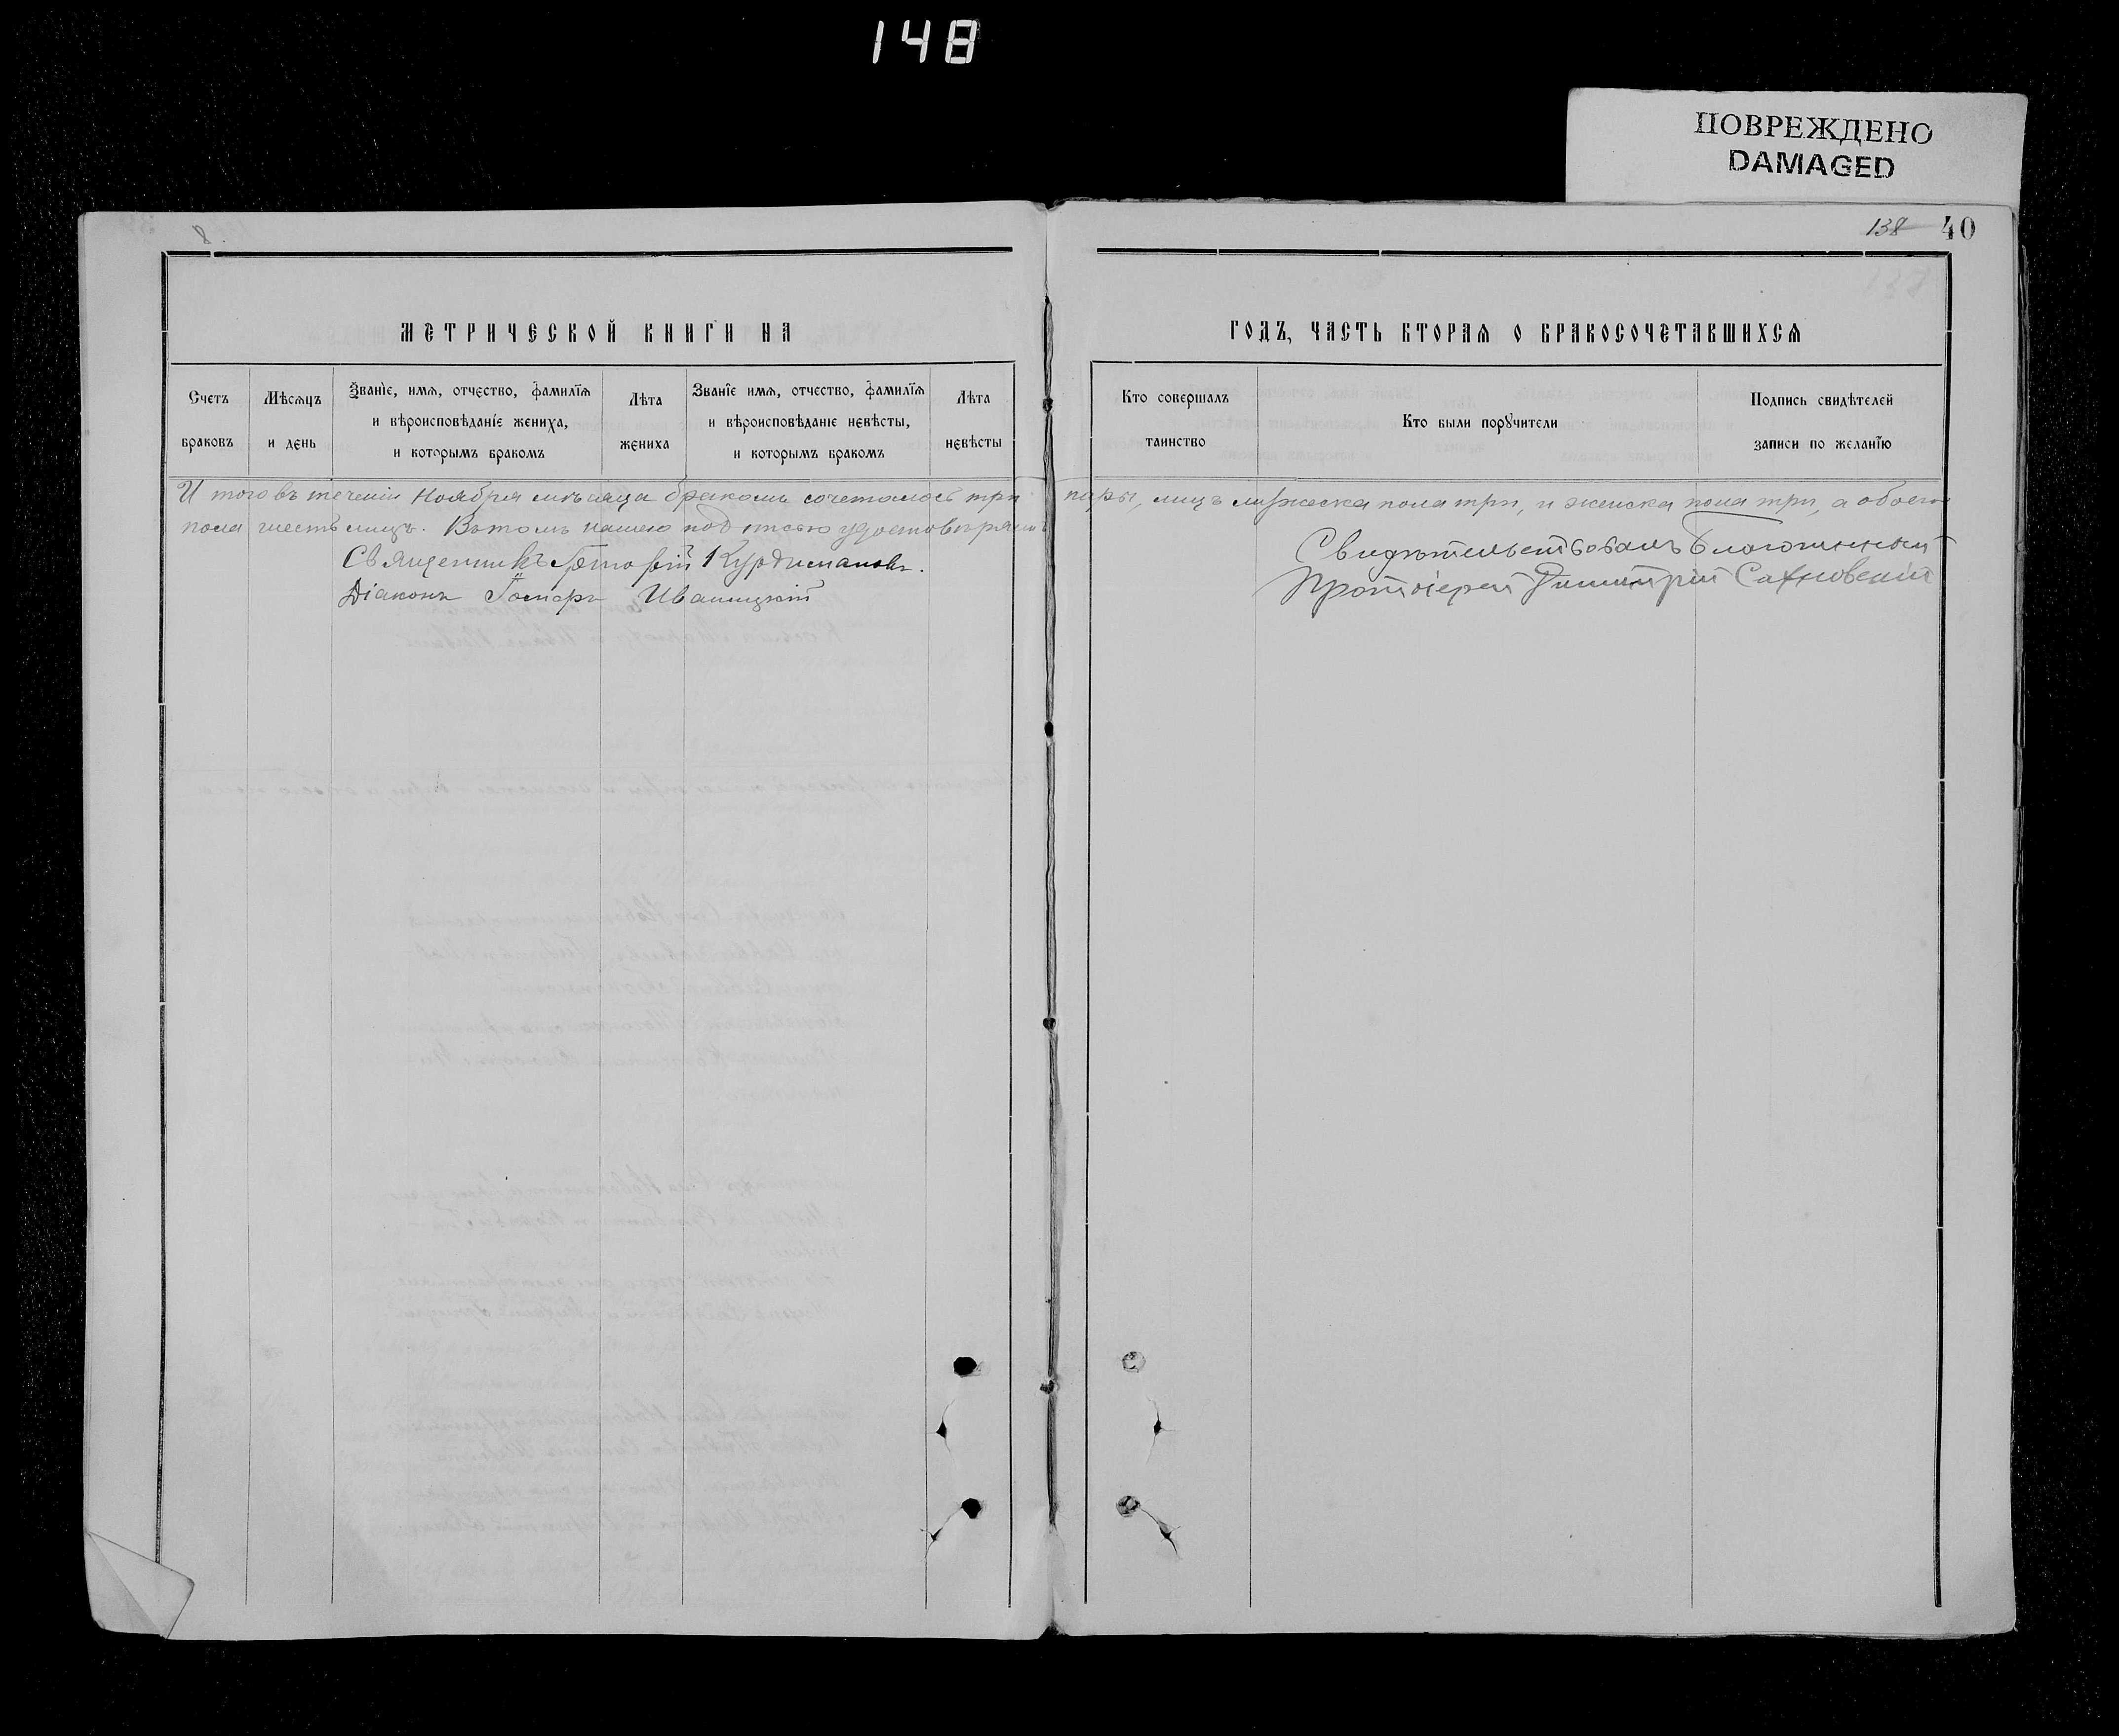 148
ПОВРЕЖДЕНО
DAMAGED
8
138 40
МЕТРИЧЕСКОЙ КНИГИ НА
ГОДЪ, ЧАСТЬ ВТОРАЯ О БРАКОСОЧЕТАВШИХСЯ
Счетъ браковъ
Мѣсяцъ и день
Званіе, имя, отчество, фамилія
и вѣроисповѣданіе жениха,
и которымъ бракомъ
Лѣта жениха
Званіе имя, отчество, фамилія
и вѣроисповѣданіе невѣсты,
и которымъ бракомъ
Лѣта невѣсты
Кто совершалъ таинство
Кто были поручители
Подпись свидѣтелей
записи по желанію
И того въ теченіи Ноября мѣсяца бракомъ сочеталось три пары, лицъ мужеска пола три, и женска пола три, а обоего
пола шесть лицъ. Въ томъ нашею подписью удостовѣряемъ
Священникъ Курдимановъ.
Діаконъ Иваницкій
Свидѣтельствовалъ благочинный
Протоіерей Димитрій Сахновскій